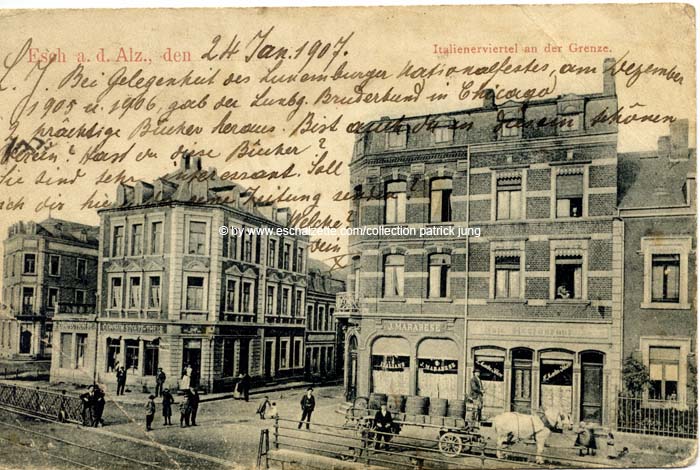 Esch a. d. Alz., den 24 Jan. 1907.
Italienerviertel an der Grenze.
L. J. Bei Gelegenheit des Luxemburger Nationalfestes, am Dezember
1905 u 1906, gab der Luxbg. Bruderbund in Chicago
prächtige Bücher heraus. Bist auch du in diesem schönen
Verein? Hast du diese Bücher?
Sie sind sehr interessant. Soll
ich dir hie eine Zeitung senden?
Welche?
dein
© by www.eschgazette.com/collection patrick jung
J. MARABESE
MARABESE